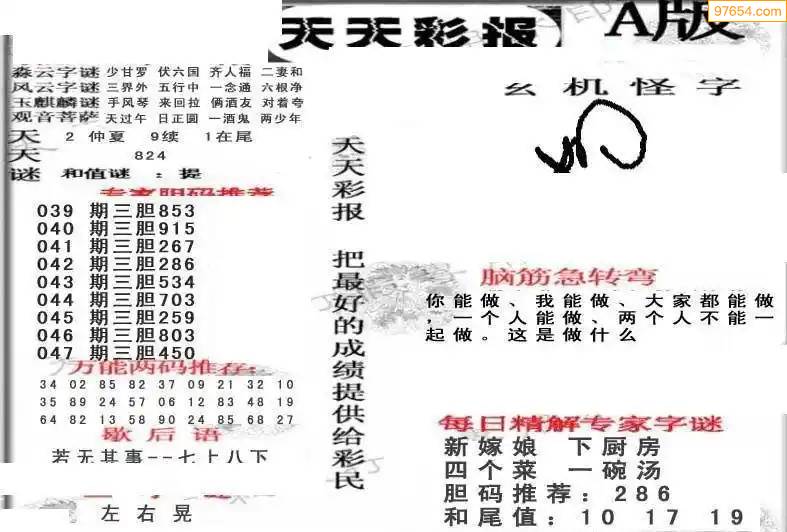 97654.com
天天彩报
A版
森云字谜 少甘罗 伏六国 齐人福 二妻和
风云字谜 三界外 五行中 一念通 六根净
玉麒麟谜 手风琴 来回拉 俩酒友 对着夸
观音菩萨 天过午 日正圆 一酒鬼 两少年
天 2 仲夏 9续 1在尾
天 824
谜 和值谜 : 提
专家胆码推荐
039 期三胆853
040 期三胆915
041 期三胆267
042 期三胆286
043 期三胆534
044 期三胆703
045 期三胆259
046 期三胆803
047 期三胆450
万能两码推荐:
34 02 85 82 37 09 21 32 10
35 89 24 57 06 12 83 48 19
64 82 13 58 90 24 85 68 27
歇后语
若无其事--七上八下
左右晃
天天彩报 把最好的成绩提供给彩民
玄机怪字
脑筋急转弯
你能做、我能做、大家都能做
，一个人能做、两个人不能一
起做。这是做什么
每日精解专家字谜
新嫁娘 下厨房
四个菜 一碗汤
胆码推荐：286
和尾值：10 17 19